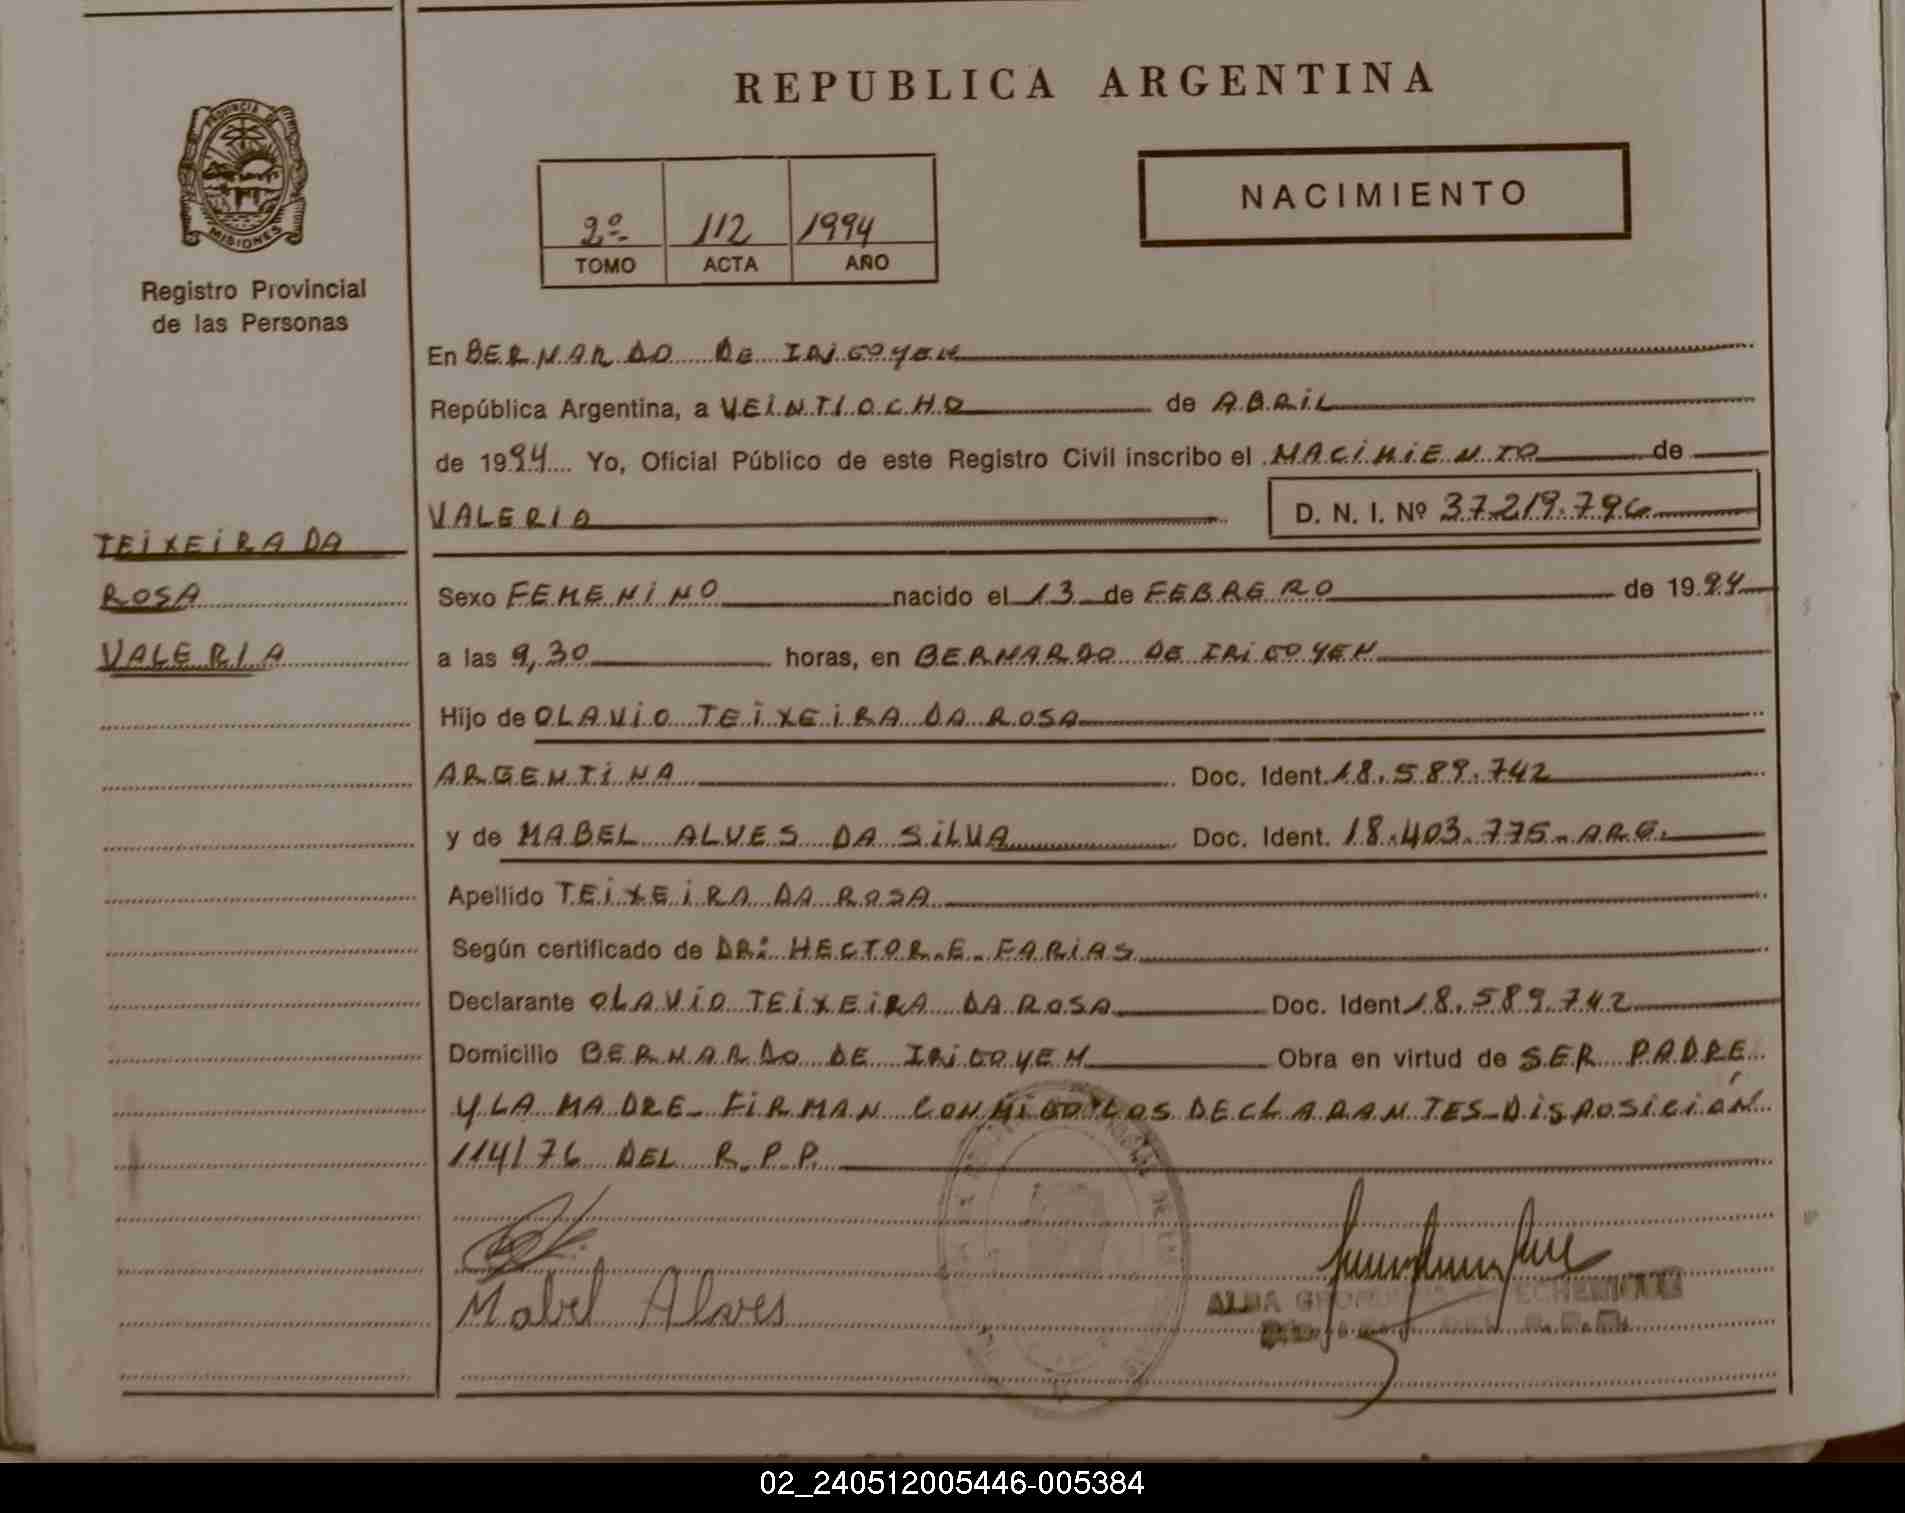 REPUBLICA ARGENTINA
PROVINCIA DE
MISIONES
Registro Provincial
de las Personas
2º 112 1994
TOMO ACTA AÑO
NACIMIENTO
En BERNARDO DE IRIGOYEN
República Argentina, a VEINTIOCHO de ABRIL
de 1994 Yo, Oficial Público de este Registro Civil inscribo el NACIMIENTO de
VALERIA D. N. I. Nº 37.219.796
TEIXEIRA DA
ROSA
VALERIA
Sexo FEMENINO nacido el 13 de FEBRERO de 1994
a las 9,30 horas, en BERNARDO DE IRIGOYEN
Hijo de OLAVIO TEIXEIRA DA ROSA
ARGENTINA Doc. Ident. 18.589.742
y de MABEL ALVES DA SILVA Doc. Ident. 18.403.775-ARG.
Apellido TEIXEIRA DA ROSA
Según certificado de DR: HECTOR.E.FARIAS
Declarante OLAVIO TEIXEIRA DA ROSA Doc. Ident 18.589.742
Domicilio BERNARDO DE IRIGOYEN Obra en virtud de SER PADRE
Y LA MADRE-FIRMAN CONMIGO LOS DECLARANTES-DISPOSICIÓN
114/76 DEL R.P.P.
Mabel Alves
ALBA
02_240512005446-005384